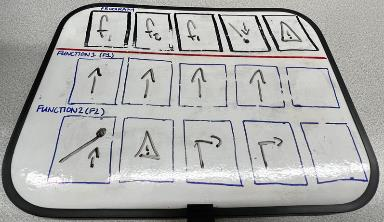 f1 f2 f1
FUNCTION 1 (F1)
FUNCTION 2 (F2)